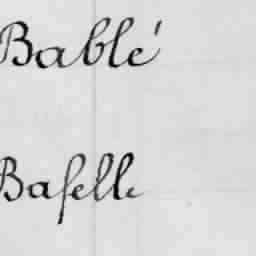 Bablé
Bafelle